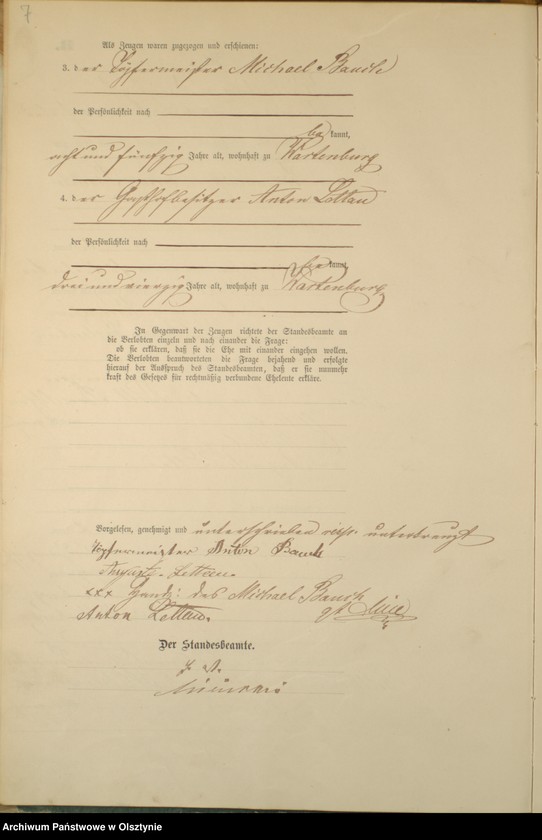 7
Als Zeugen waren zugezogen und erschienen:
3. der Töpfermeister Michael Bauch
der Persönlichkeit nach
be kannt,
acht und fünfzig Jahre alt, wohnhaft zu Wartenburg
4. der Gasthofbesitzer Anton Lettau
der Persönlichkeit nach
be kannt,
drei und vierzig Jahre alt, wohnhaft zu Wartenburg
In Gegenwart der Zeugen richtete der Standesbeamte an
die Verlobten einzeln und nach einander die Frage:
ob sie erklären, daß sie die Ehe mit einander eingehen wollen.
Die Verlobten beantworteten die Frage bejahend und erfolgte
hierauf der Ausspruch des Standesbeamten, daß er sie nunmehr
kraft des Gesetzes für rechtmäßig verbundene Eheleute erkläre.
Vorgelesen, genehmigt und unterschrieben resp. unterkreuzt
Töpfermeister Anton Bauch
Lettau.
xxx Handz. des Michael Bauch
Anton Lettau.
Der Standesbeamte.
Archiwum Państwowe w Olsztynie